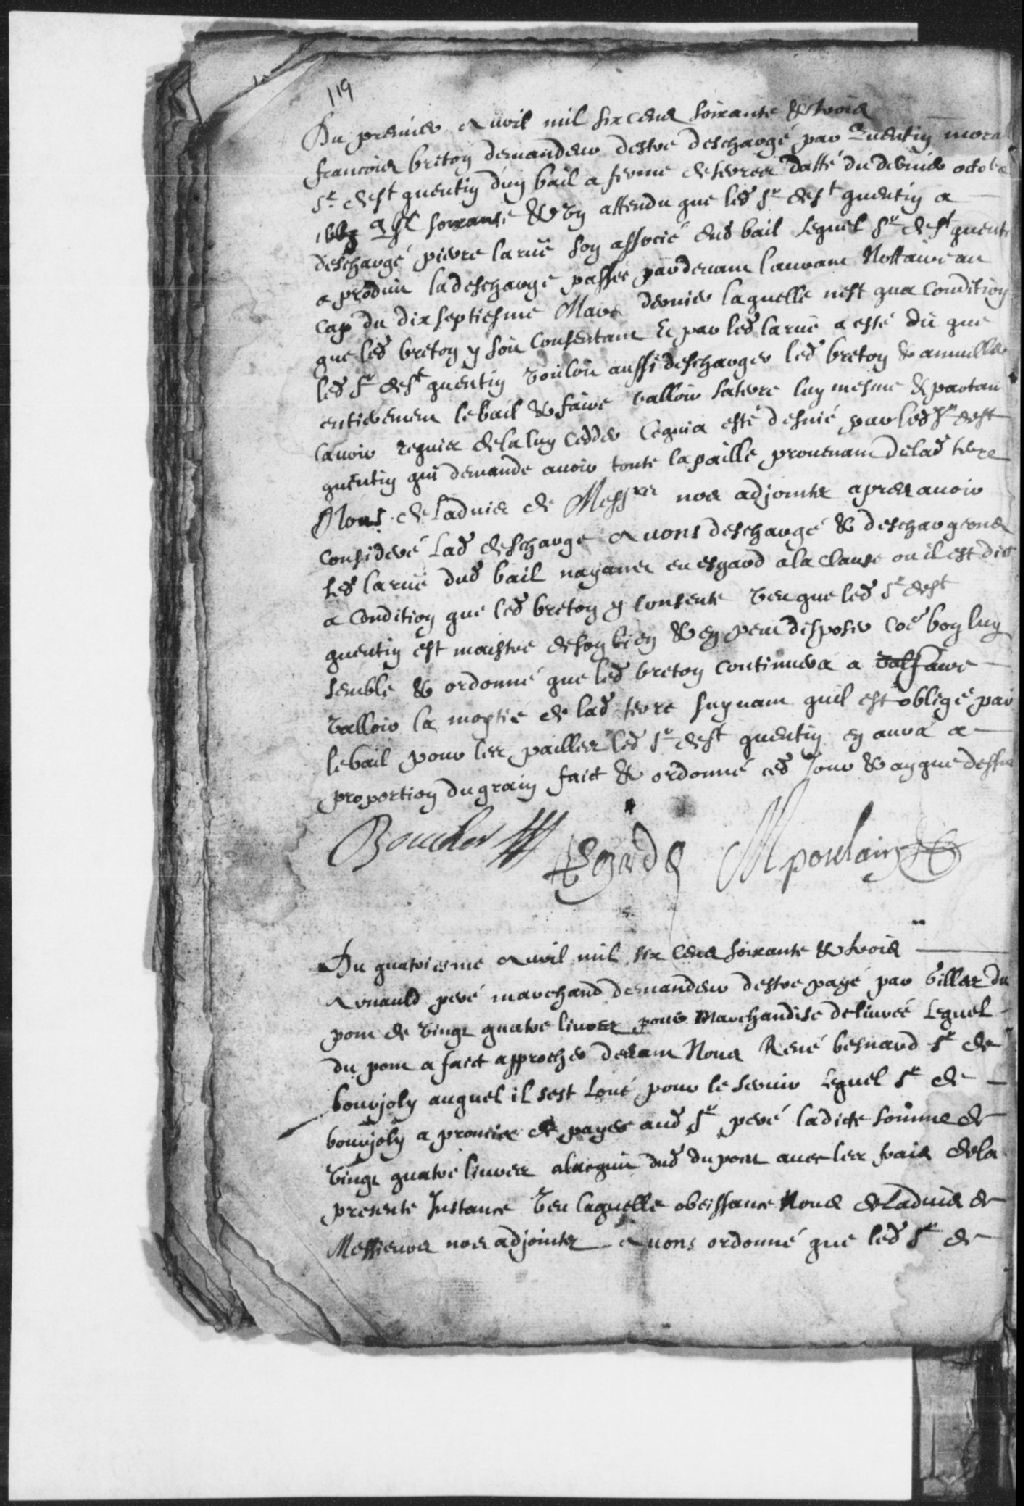 119
Du premier Avril mil six cens soixante & trois
francois breton demandeur destre deschargé par Quentin mora
Sr de St quentin d'un bail a ferme de terres datté du dernier octob
1661 soixante & un attendu que led Sr de St quentin a
deschargé pierre larue son associé dud bail Lequel Sr de St quent
a produit la descharge passee pardevant Nottaire au
cap du dix septiesme Mars dernier laquelle nest qua condition
que led breton y soit consentant Et par led larue a esté dit que
led Sr de St quentin vouloit aussi descharger led breton & annuller
entierement le bail & faire valloir sa terre luy mesme &
requis de la luy cedder Cequi a esté desnié par led Sr de St
quentin qui demande avoir toute la paille provenant de lad terre
Nous de Ladvis de Messrs nos adjoints apres avoir
consideré Lad descharge avons deschargé & deschargeons
led larue dud bail nayant esgard a la clause ou il est dit
a condition que led breton y consente Veu que led Sr de St
quentin est maistre de son bien & en peut disposer coē bon luy
semble & ordonné que led breton continuera a faire
valloir la moytié de lad terre suyvant quil est obligé par
le bail pour les pailles led Sr de St quentin en aura a
proportion du grain faict & ordonné ced Jour & an que dessus
Boucher Legarde M poulain
Du quatriesme Avril mil six cens soixante & trois
Arnauld peré marchand demandeur destre payé par Gilles du
pont de vingt quatre livres pour Marchandise delivrée Lequel
du pont a faict approcher devant Nous René besnard Sr de
bourjoly auquel il sest Loué pour le servir Lequel Sr de
bourjoly a promis de payer aud Sr peré ladicte somme de
vingt quatre livres alacquit dud dupont avec les frais de la
presente Instance Veu laquelle obeissance Nous de Ladvis de
Messieurs nos adjoints avons ordonné que led Sr de